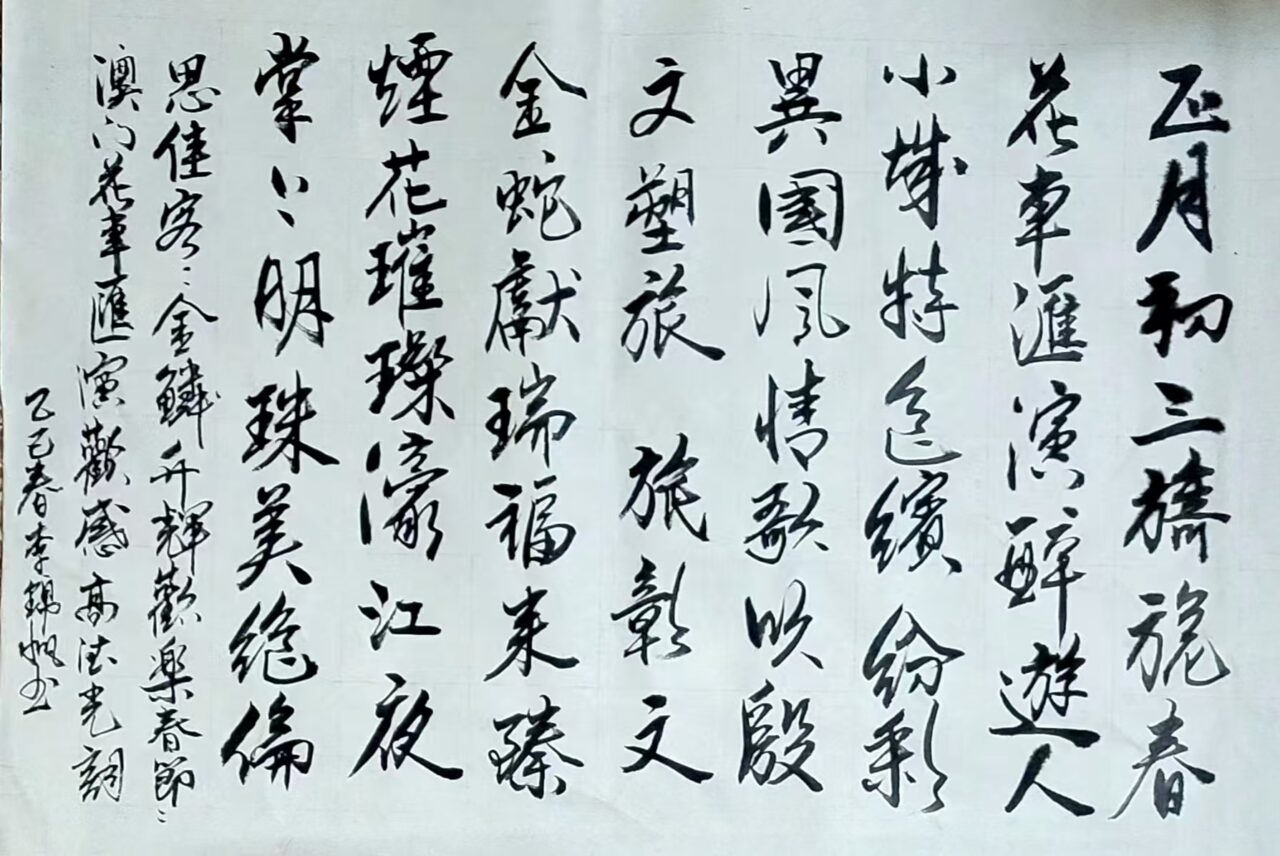 正月初三旖旎春
花車滙演醉遊人
小城特色繽紛彩
異國風情歌吹殷
文塑旅 旅彰文
金蛇獻瑞福來臻
煙花璀璨濠江夜
掌上明珠美絕倫
思佳客：金鱗升輝歡樂春節：
澳门花車匯演觀感 高德光詞
乙巳春李錦帆书